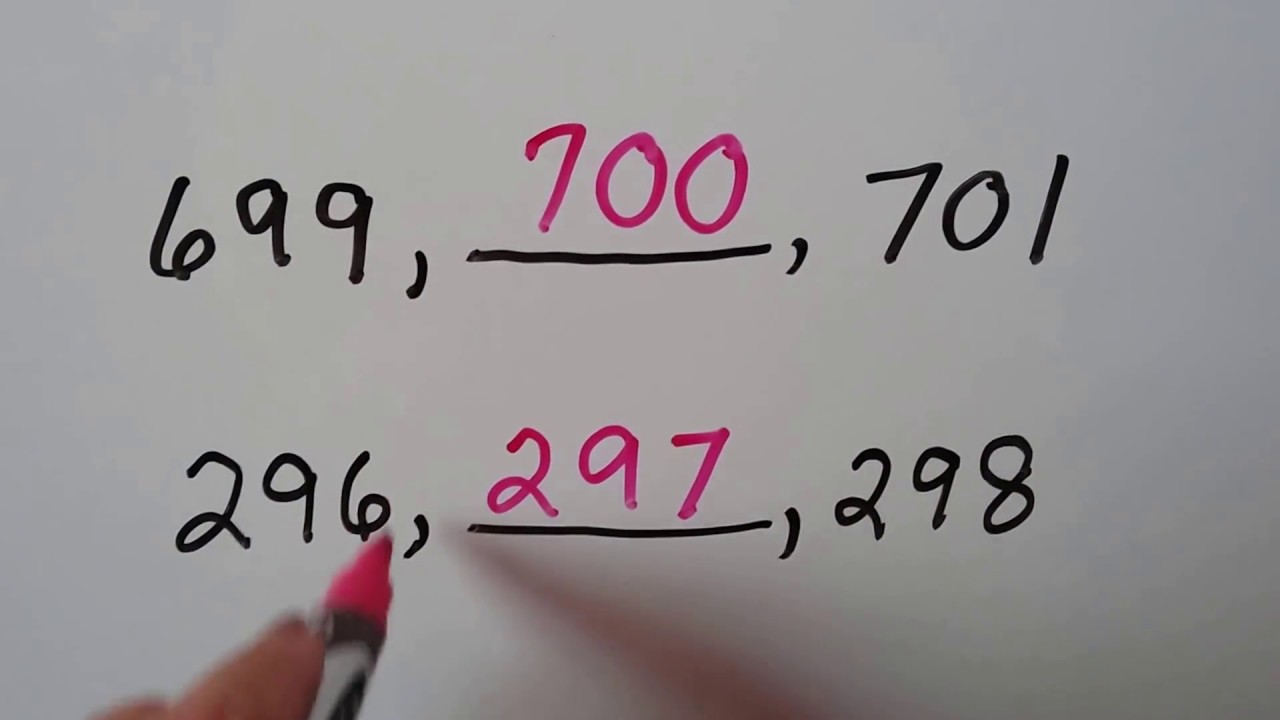 699, 700, 701
296, 297, 298